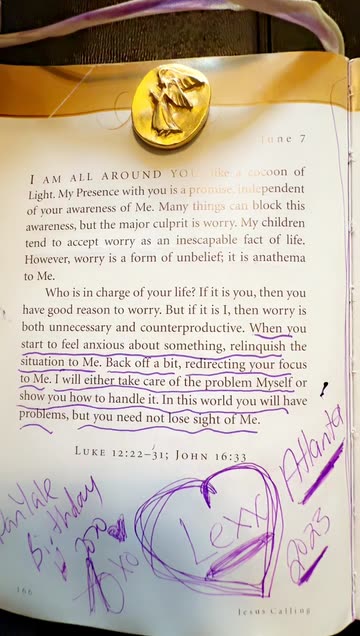 June 7
I AM ALL AROUND YOU, like a cocoon of
Light. My Presence with you is a promise, independent
of your awareness of Me. Many things can block this
awareness, but the major culprit is worry. My children
tend to accept worry as an inescapable fact of life.
However, worry is a form of unbelief; it is anathema
to Me.
Who is in charge of your life? If it is you, then you
have good reason to worry. But if it is I, then worry is
both unnecessary and counterproductive. When you
start to feel anxious about something, relinquish the
situation to Me. Back off a bit, redirecting your focus
to Me. I will either take care of the problem Myself or
show you how to handle it. In this world you will have
problems, but you need not lose sight of Me.
LUKE 12:22–31; JOHN 16:33
Birthday
Lexx
Atlanta
2023
XO
166
Jesus Calling